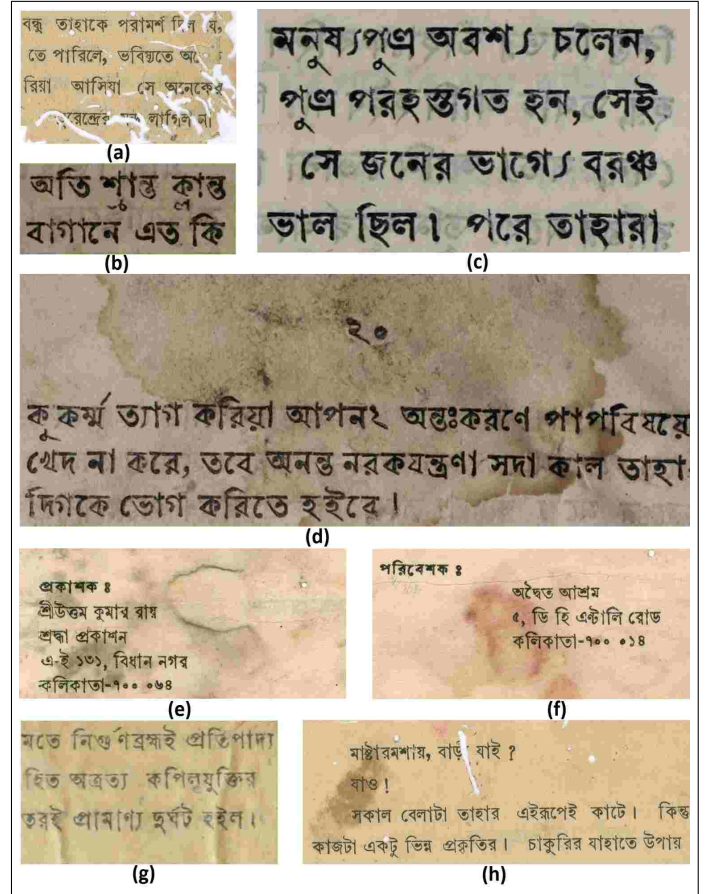 বন্ধু তাহাকে পরামর্শ দিল যে,
তে পারিলে, ভবিষ্যতে
রিয়া আসিয়া সে অনেকের
লাগিল না
(a)
অতি শ্রান্ত ক্লান্ত
বাগানে এত কি
(b)
মনুষ্যপুত্র অবশ্য চলেন,
পুত্র পরহস্তগত হন, সেই
সে জনের ভাগ্যে বরঞ্চ
ভাল ছিল। পরে তাহারা
(c)
২০
কুকর্ম্ম ত্যাগ করিয়া আপন২ অন্তঃকরণে পাপবিষয়ে
খেদ না করে, তবে অনন্ত নরকযন্ত্রণা সদা কাল তাহা
দিগকে ভোগ করিতে হইবে।
(d)
প্রকাশক ঃ
শ্রীউত্তম কুমার রায়
শ্রদ্ধা প্রকাশন
এ-ই ১৩১, বিধান নগর
কলিকাতা-৭০০ ০৬৪
(e)
পরিবেশক ঃ
অদ্বৈত আশ্রম
৫, ডি হি এণ্টালি রোড
কলিকাতা-৭০০ ০১৪
(f)
মতে নির্গুণব্রহ্মই প্রতিপাদ্য
হিত অত্রত্য কপিলযুক্তির
তরই প্রামাণ্য দুর্ঘট হইল।
(g)
মাষ্টারমশায়, বাড়ী যাই ?
যাও !
সকাল বেলাটা তাহার এইরূপেই কাটে। কিন্তু
কাজটা একটু ভিন্ন প্রকৃতির। চাকুরির যাহাতে উপায়
(h)